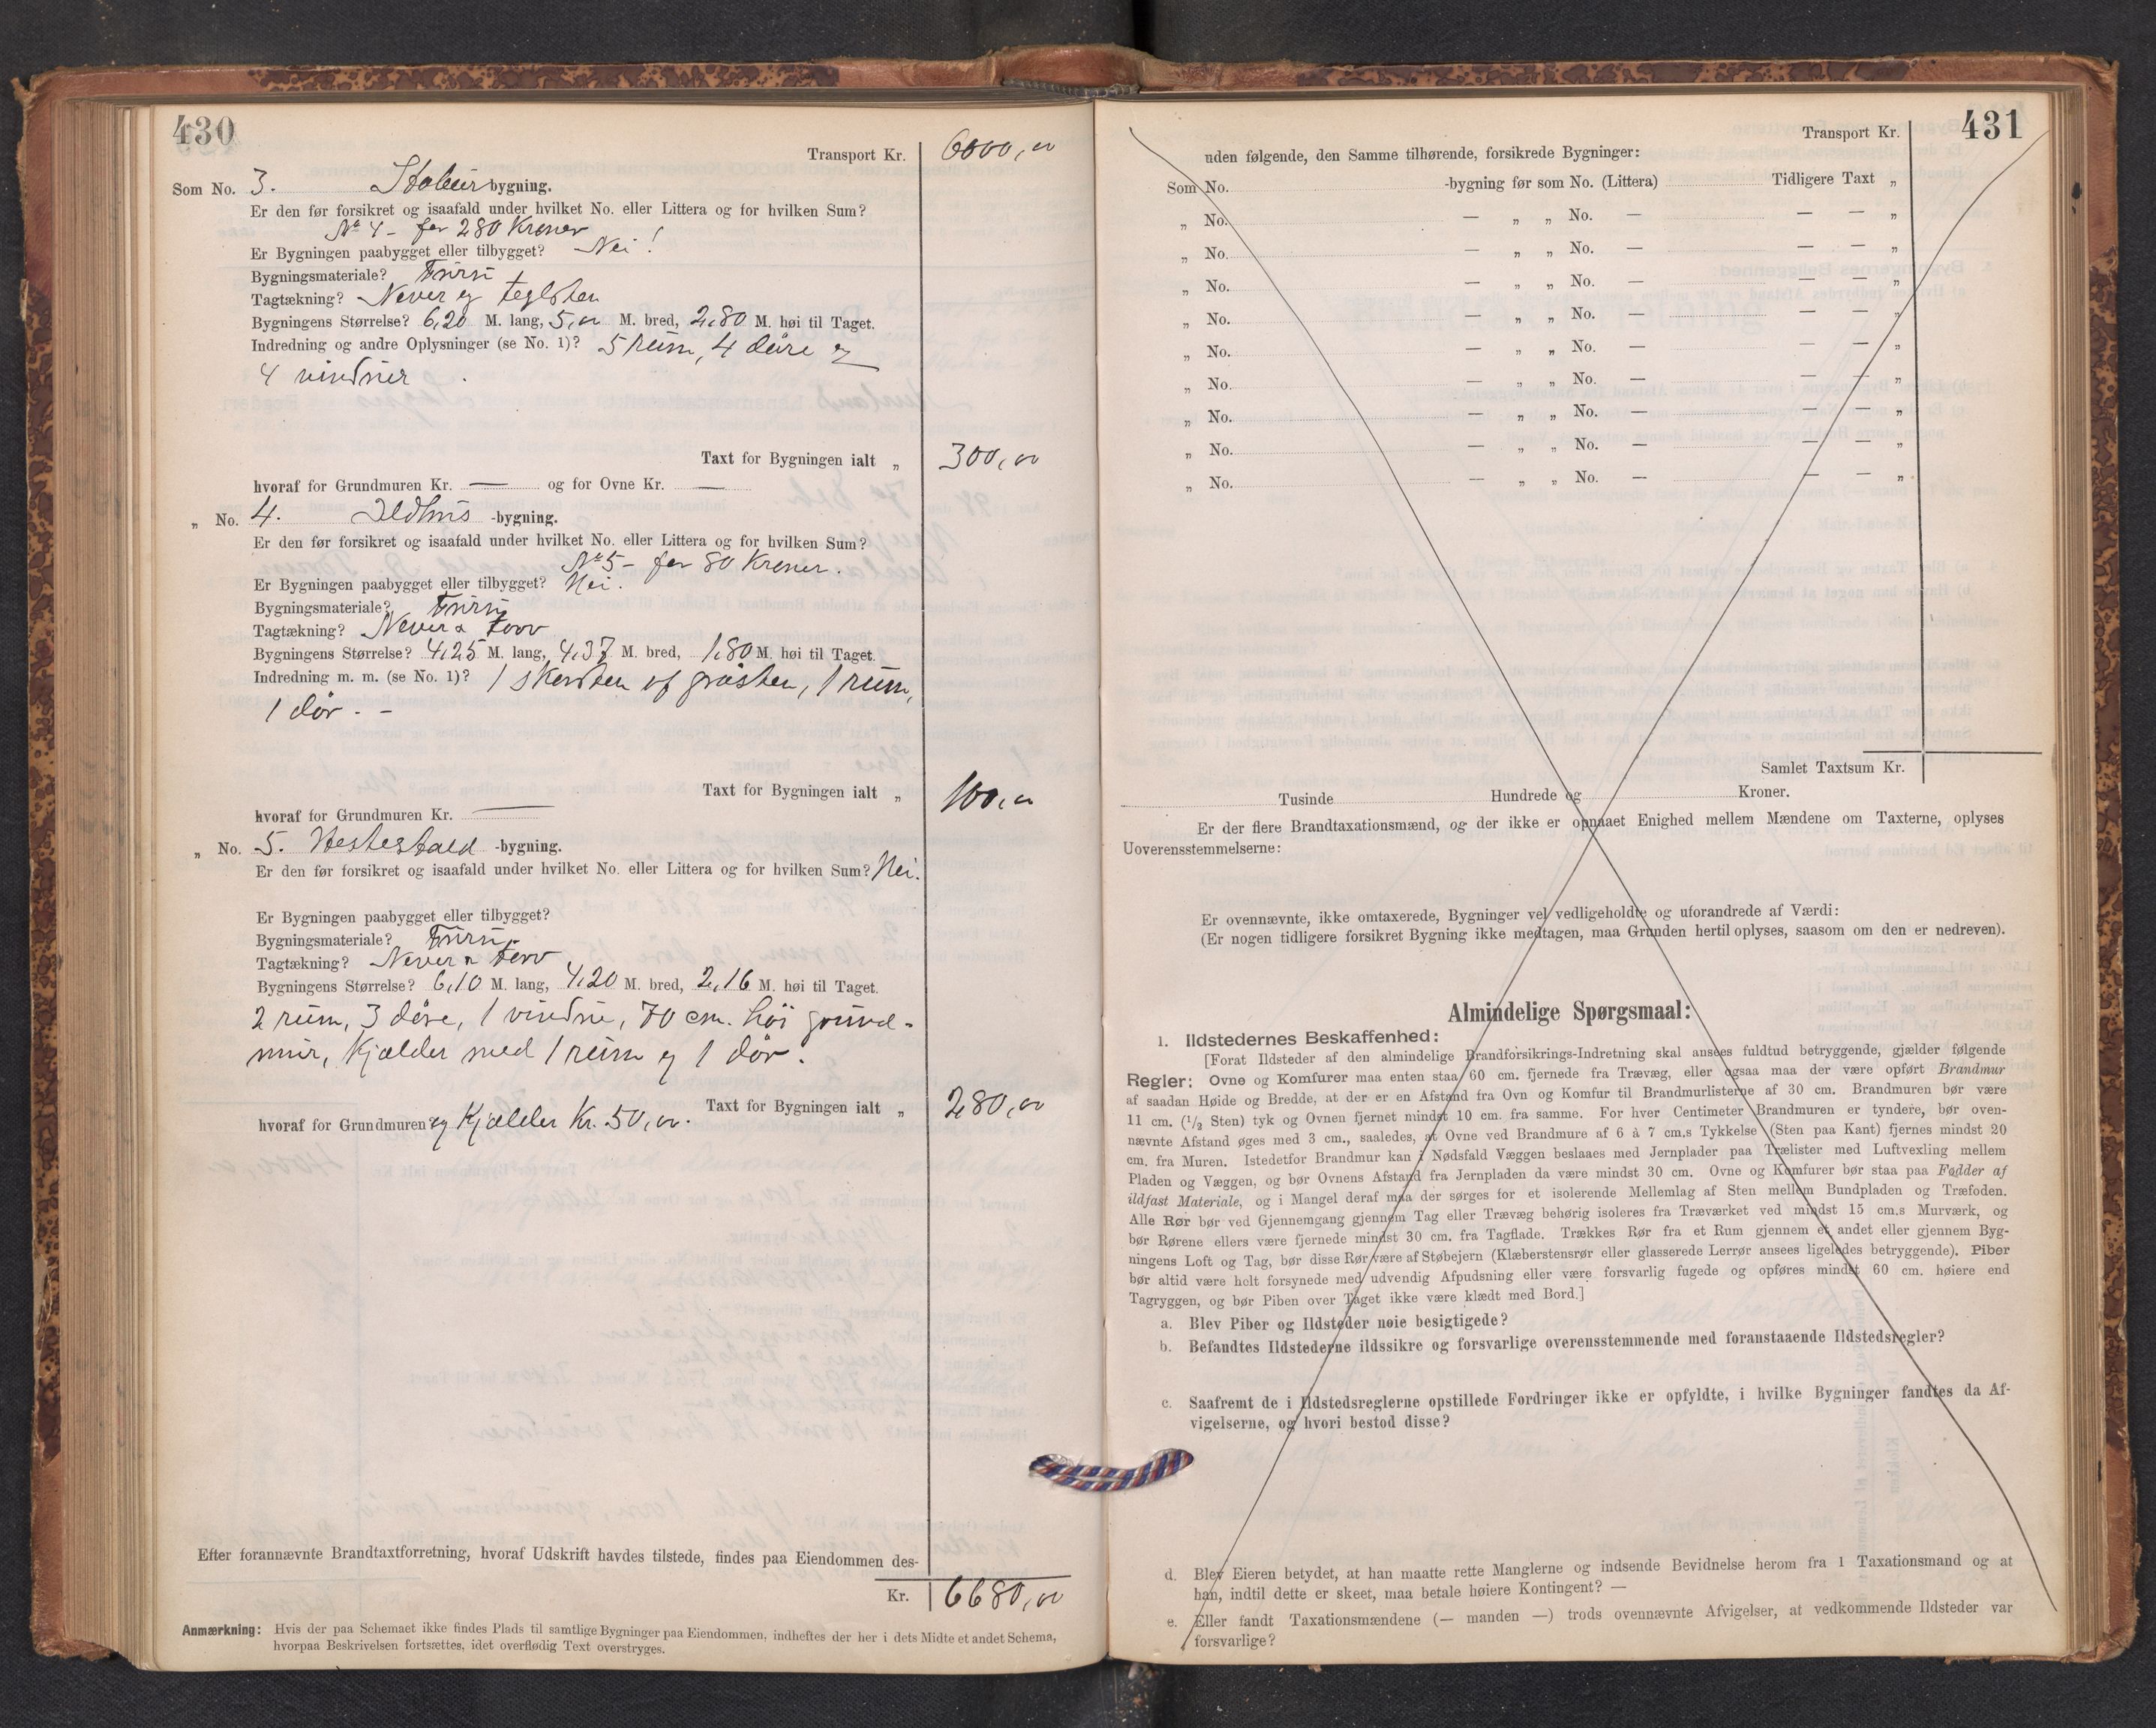 430
Transport Kr. 6000,00
Som No. 3. Stabur bygning.
Er den før forsikret og isaafald under hvilket No. eller Littera og for hvilken Sum?
No 4 - for 280 Kroner
Er Bygningen paabygget eller tilbygget? Nei!
Bygningsmateriale? Furu
Tagtækning? Never og teglsten
Bygningens Størrelse? 6,20 M. lang, 5,00 M. bred, 2,80 M. høi til Taget.
Indredning og andre Oplysninger (se No. 1)? 5 rum, 4 døre og
4 vinduer.
Taxt for Bygningen ialt „ 300,00
hvoraf for Grundmuren Kr. — og for Ovne Kr. —
„ No. 4. Ildhus -bygning.
Er den før forsikret og isaafald under hvilket No. eller Littera og for hvilken Sum?
No 5 - for 80 Kroner.
Er Bygningen paabygget eller tilbygget? Nei.
Bygningsmateriale? Furu
Tagtækning? Never & torv
Bygningens Størrelse? 4,25 M. lang, 4,37 M. bred, 1,80 M. høi til Taget.
Indredning m. m. (se No. 1)? 1 skorsten af gråsten, 1 rum,
1 dør. -
Taxt for Bygningen ialt „ 100,00
hvoraf for Grundmuren Kr. —
„ No. 5. Hestestald -bygning.
Er den før forsikret og isaafald under hvilket No. eller Littera og for hvilken Sum? Nei.
Er Bygningen paabygget eller tilbygget?
Bygningsmateriale? Furu
Tagtækning? Never & torv
Bygningens Størrelse? 6,10 M. lang, 4,20 M. bred, 2,16 M. høi til Taget.
2 rum, 3 døre, 1 vindu, 70 cm. høi grund-
mur, Kjælder med 1 rum og 1 dør.
Taxt for Bygningen ialt „ 280,00
hvoraf for Grundmuren og Kjælder Kr. 50,00.
Efter forannævnte Brandtaxtforretning, hvoraf Udskrift havdes tilstede, findes paa Eiendommen des-
Kr. 6680,00
Anmærkning: Hvis der paa Schemaet ikke findes Plads til samtlige Bygninger paa Eiendommen, indheftes der her i dets Midte et andet Schema,
hvorpaa Beskrivelsen fortsættes, idet overflødig Text overstryges.
431
Transport Kr.
uden følgende, den Samme tilhørende, forsikrede Bygninger:
Som No. -bygning før som No. (Littera) Tidligere Taxt „
„ No. — „ „ No. — — — „
„ No. — „ „ No. — — — „
„ No. — „ „ No. — — — „
„ No. — „ „ No. — — — „
„ No. — „ „ No. — — — „
„ No. — „ „ No. — — — „
„ No. — „ „ No. — — — „
„ No. — „ „ No. — — — „
„ No. — „ „ No. — — — „
Samlet Taxtsum Kr.
Tusinde Hundrede og Kroner.
Er der flere Brandtaxationsmænd, og der ikke er opnaaet Enighed mellem Mændene om Taxterne, oplyses
Uoverensstemmelserne:
Er ovennævnte, ikke omtaxerede, Bygninger vel vedligeholdte og uforandrede af Værdi:
(Er nogen tidligere forsikret Bygning ikke medtagen, maa Grunden hertil oplyses, saasom om den er nedreven).
Almindelige Spørgsmaal:
1. Ildstedernes Beskaffenhed:
[Forat Ildsteder af den almindelige Brandforsikrings-Indretning skal ansees fuldtud betryggende, gjælder følgende
Regler: Ovne og Komfurer maa enten staa 60 cm. fjernede fra Trævæg, eller ogsaa maa der være opført Brandmur
af saadan Høide og Bredde, at der er en Afstand fra Ovn og Komfur til Brandmurlisterne af 30 cm. Brandmuren bør være
11 cm. (1/2 Sten) tyk og Ovnen fjernet mindst 10 cm. fra samme. For hver Centimeter Brandmuren er tyndere, bør oven-
nævnte Afstand øges med 3 cm., saaledes, at Ovne ved Brandmure af 6 à 7 cm.s Tykkelse (Sten paa Kant) fjernes mindst 20
cm. fra Muren. Istedetfor Brandmur kan i Nødsfald Væggen beslaaes med Jernplader paa Trælister med Luftvexling mellem
Pladen og Væggen, og bør Ovnens Afstand fra Jernpladen da være mindst 30 cm. Ovne og Komfurer bør staa paa Fødder af
ildfast Materiale, og i Mangel deraf maa der sørges for et isolerende Mellemlag af Sten mellem Bundpladen og Træfoden.
Alle Rør bør ved Gjennemgang gjennem Tag eller Trævæg behørig isoleres fra Træværket ved mindst 15 cm.s Murværk, og
bør Rørene ellers være fjernede mindst 30 cm. fra Tagflade. Trækkes Rør fra et Rum gjennem et andet eller gjennem Byg-
ningens Loft og Tag, bør disse Rør være af Støbejern (Klæberstensrør eller glasserede Lerrør ansees ligeledes betryggende). Piber
bør altid være helt forsynede med udvendig Afpudsning eller være forsvarlig fugede og opføres mindst 60 cm. høiere end
Tagryggen, og bør Piben over Taget ikke være klædt med Bord.]
a. Blev Piber og Ildsteder nøie besigtigede?
b. Befandtes Ildstederne ildssikre og forsvarlige overensstemmende med foranstaaende Ildstedsregler?
c. Saafremt de i Ildstedsreglerne opstillede Fordringer ikke er opfyldte, i hvilke Bygninger fandtes da Af-
vigelserne, og hvori bestod disse?
d. Blev Eieren betydet, at han maatte rette Manglerne og indsende Bevidnelse herom fra 1 Taxationsmand og at
han, indtil dette er skeet, maa betale høiere Kontingent? —
e. Eller fandt Taxationsmændene (— manden —) trods ovennævnte Afvigelser, at vedkommende Ildsteder var
forsvarlige?